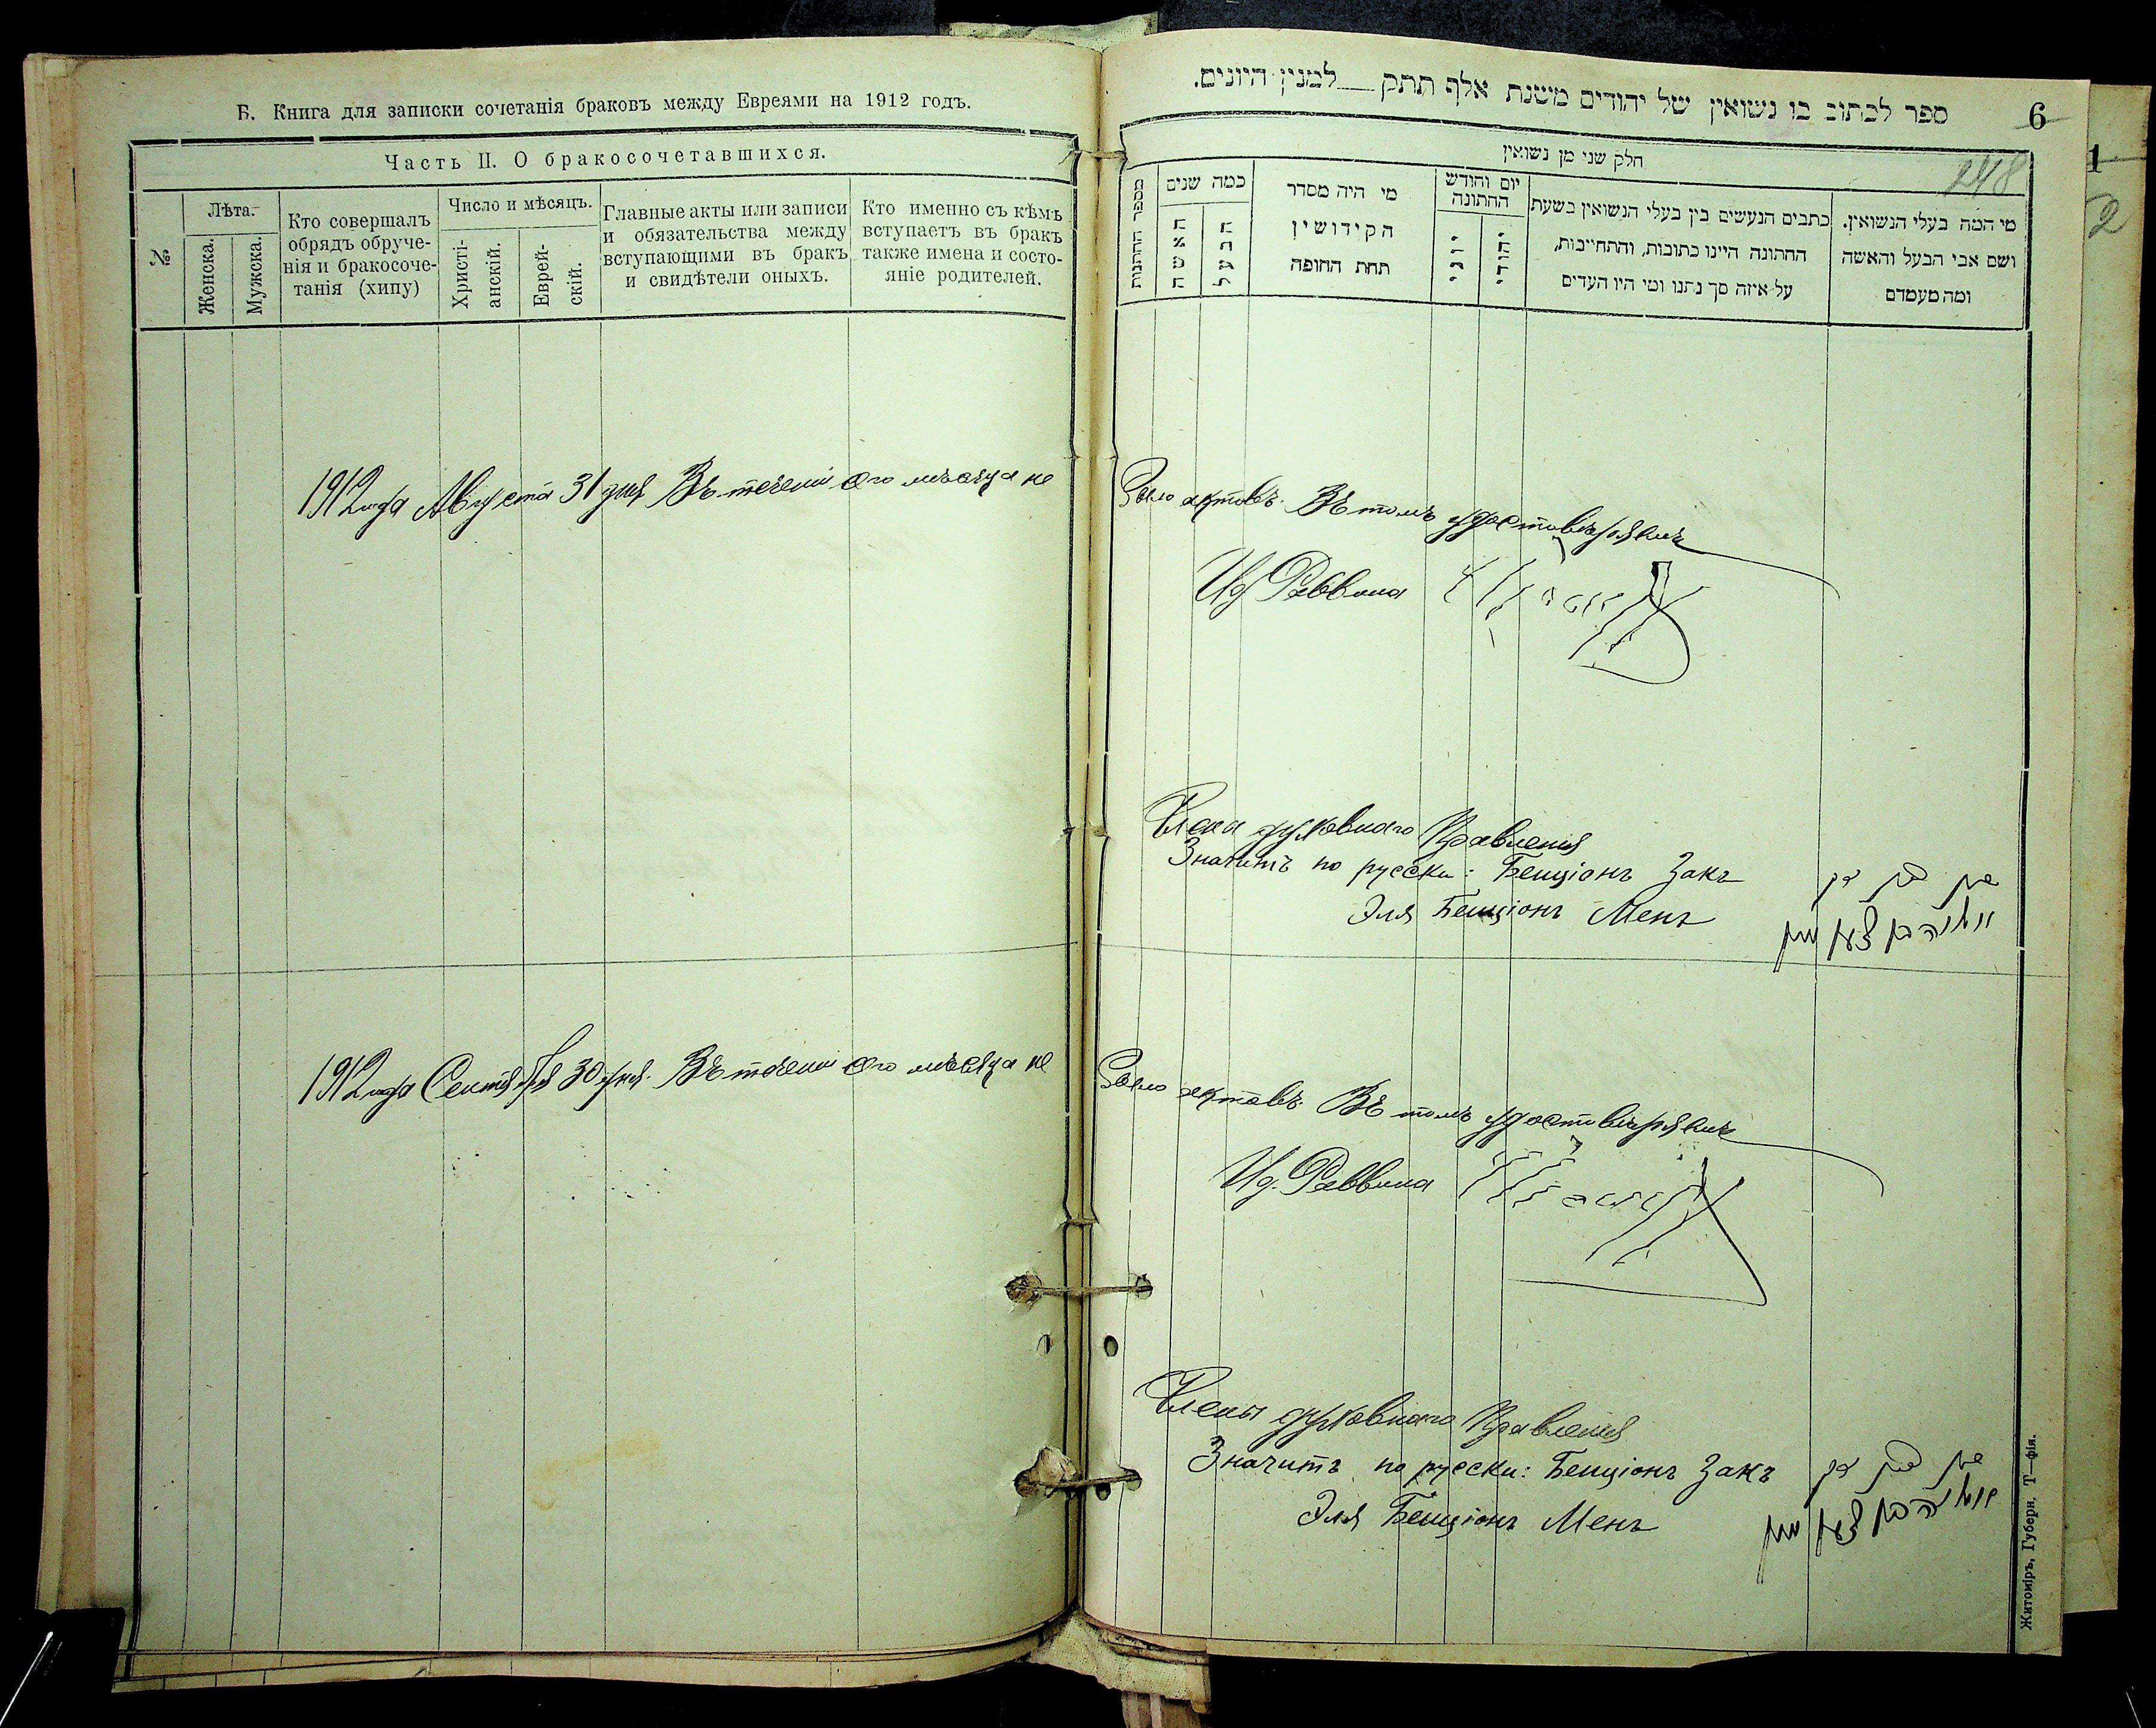 Б. Книга для записки сочетанія браковъ между Евреями на 1912 годъ.
Часть II. О бракосочетавшихся.
№
Лѣта.
Женска.
Мужска.
Кто совершалъ
обрядъ обруче-
нія и бракосоче-
танія (хипу)
Число и мѣсяцъ.
Христі-
анскій.
Еврей-
скій.
Главные акты или записи
и обязательства между
вступающими въ бракъ
и свидѣтели оныхъ.
Кто именно съ кѣмъ
вступаетъ въ бракъ
также имена и состо-
яніе родителей.
ספר לכתוב בו נשואין של יהודים משנת אלף תתק למנין היונים.
6
חלק שני מן נשואין
248
מספר החתנות
כמה שנים
האשה
הבעל
מי היה מסדר
הקידושין
תחת החופה
יום וחודש
החתונה
יוני
יהודי
כתבים הנעשים בין בעלי הנשואין בשעת
החתונה היינו כתובות, והתחייבות,
על איזה סך נתנו ומי היו העדים
מי המה בעלי הנשואין.
ושם אבי הבעל והאשה
ומה מעמדם
1
2
1912 года Августа 31 дня Въ теченіи сего мѣсяца не было актовъ. Въ томъ удостовѣряемъ
Ид Раввина
Члена духовнаго Правленія
Значитъ по русски: Бенціонъ Закъ
Эля Бенціонъ Менъ
1912 года Сентября 30 дня. Въ теченіи сего мѣсяца не было актовъ. Въ томъ удостовѣряемъ
Ид. Раввина
Члены духовнаго Правленія
Значитъ по русски: Бенціонъ Закъ
Эля Бенціонъ Менъ
Житоміръ, Губерн. Т—фія.